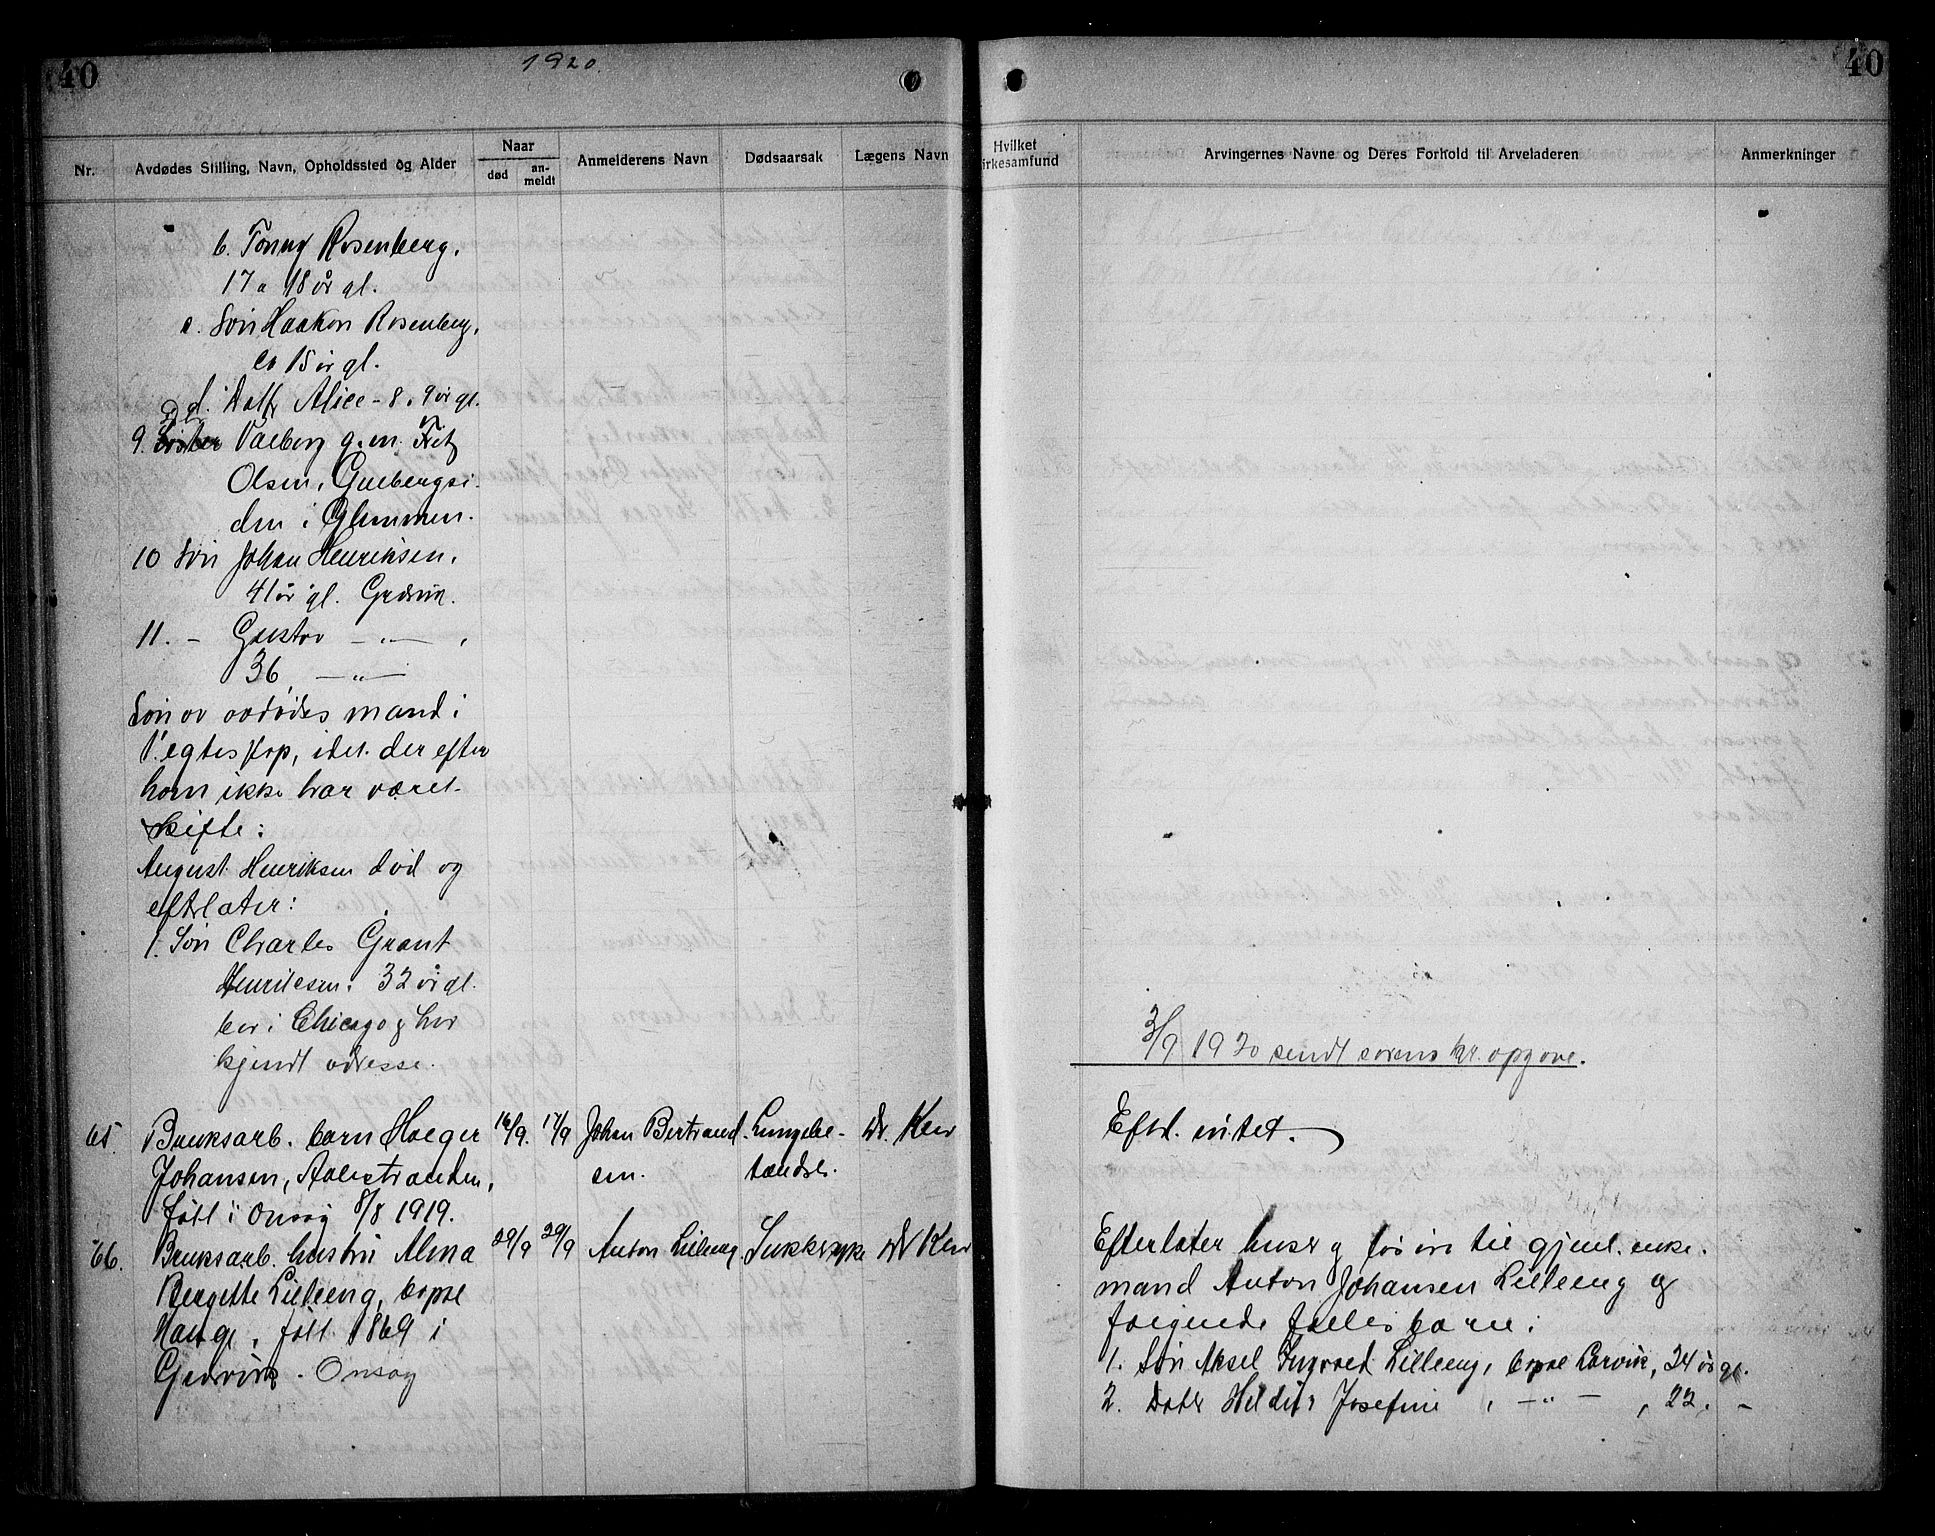 40
1920.
40
Nr.
Avdødes Stilling, Navn, Opholdssted og Alder
Naar
død
an-
meldt
Anmelderens Navn
Dødsaarsak
Lægens Navn
Hvilket
irkesamfund
Arvingernes Navne og Deres Forhold til Arveladeren
Anmerkninger
b. Tonny Rosenberg,
17 a 18 år gl.
c. Søn Haakon Rosenberg,
ca 15 år gl.
d. Datr Alice - 8 a 9 år gl.
9. Valborg g. m.
Olsen,
den i Glemmen.
10 Søn Johan Henriksen,
41 år gl. Græsvik.
11. - Gustav — " — ,
36 — " —
Søn av avdødes mand i
1. egteskap, idet der efter
ham ikke har været
skifte:
August Henriksen død og
efterlater:
1. Søn Charles Grant
Henriksen. 32 år gl.
bor i Chicago og har
kjendt adresse.
3/9 1920 sendt sorenskr. opgave.
65. Bruksarb. barn Holger 16/9. 17/9 Johan Bertrand- Lungebe- Dr. Kew Efterl. intet.
Johansen, Aalestranden, sen. tændelse.
født i Onsøy 8/8 1919.
66. Bruksarb. hustru Alma 29/9 29/9 Anton Lilleeng Sukkersyke Dr Kew Efterlater huser og løsøre til gjenl. enke-
Bergette Lilleeng, bopæl mand Anton Johansen Lilleeng og
Hauge, født 1869 i følgende fælles barn:
Græsvik - Onsøy 1. Søn Aksel Ingvald Lilleeng, bopæl Larvik, 24 år gl.
2. Dater Josefine , — " — , 22, -